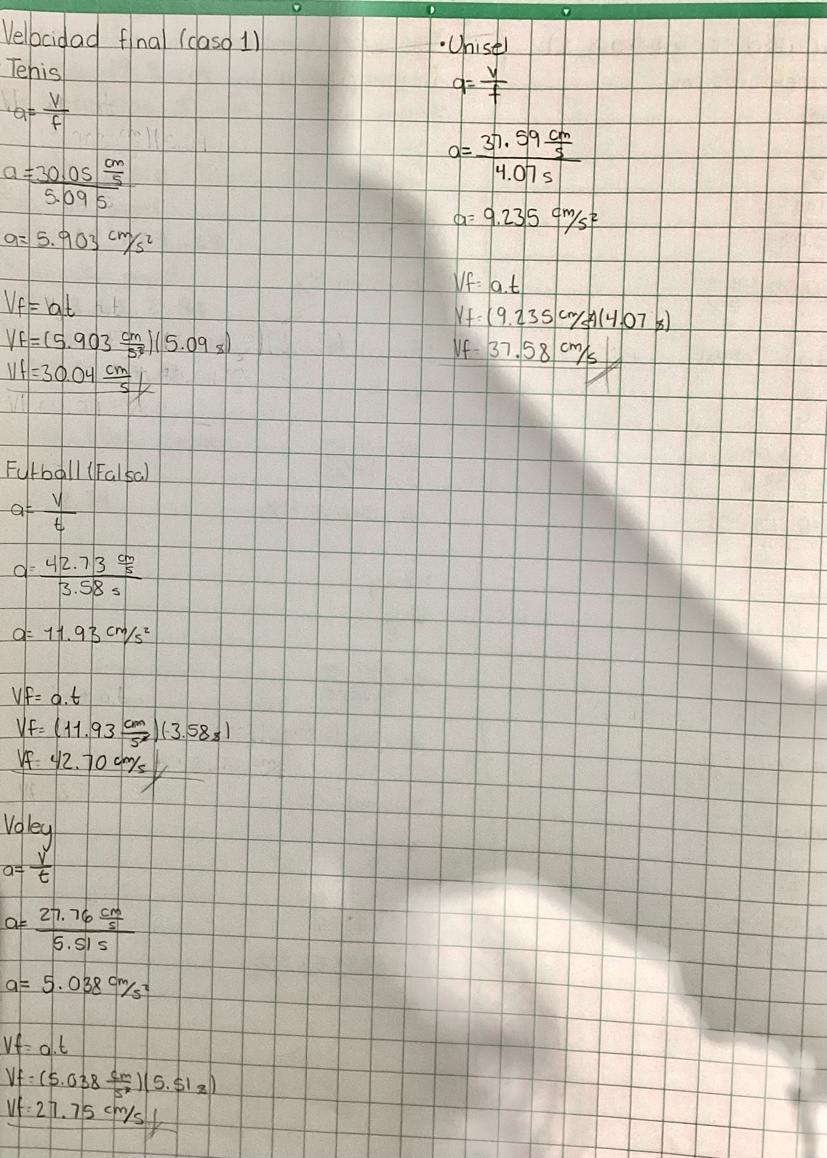 Velocidad final (caso 1)
Tenis
a= V/t
a= 30.05 cm/s / 5.09 s
a= 5.903 cm/s²
Vf= at
Vf=(5.903 cm/s²)(5.09 s)
Vf=30.04 cm/s
Futball (Falsa)
a= V/t
a= 42.73 cm/s / 3.58 s
a= 11.93 cm/s²
Vf= a.t
Vf= (11.93 cm/s²)(3.58 s)
Vf= 42.70 cm/s
Voley
a= V/t
a= 27.76 cm/s / 5.51 s
a= 5.038 cm/s²
Vf= a.t
Vf=(5.038 cm/s²)(5.51 s)
Vf=27.75 cm/s
•Unisel
a= V/t
a= 37.59 cm/s / 4.07 s
a= 9.235 cm/s²
Vf= a.t
Vf=(9.235 cm/s²)(4.07 s)
Vf= 37.58 cm/s